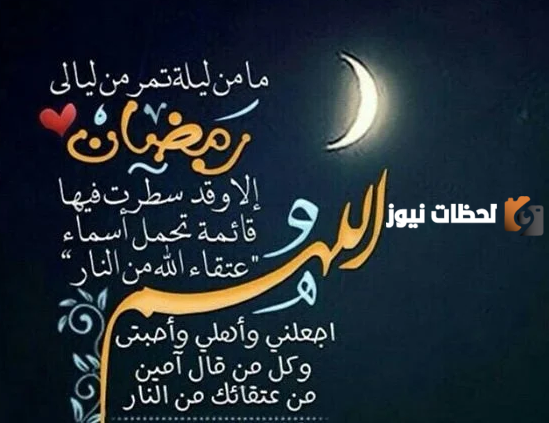 ما من ليلة تمر من ليالى
رمضان
إلا وقد سطرت فيها
قائمة تحمل أسماء
"عتقاء الله من النار"
اللهم
اجعلني وأهلي وأحبتى
وكل من قال آمين
من عتقائك من النار
لحظات نيوز